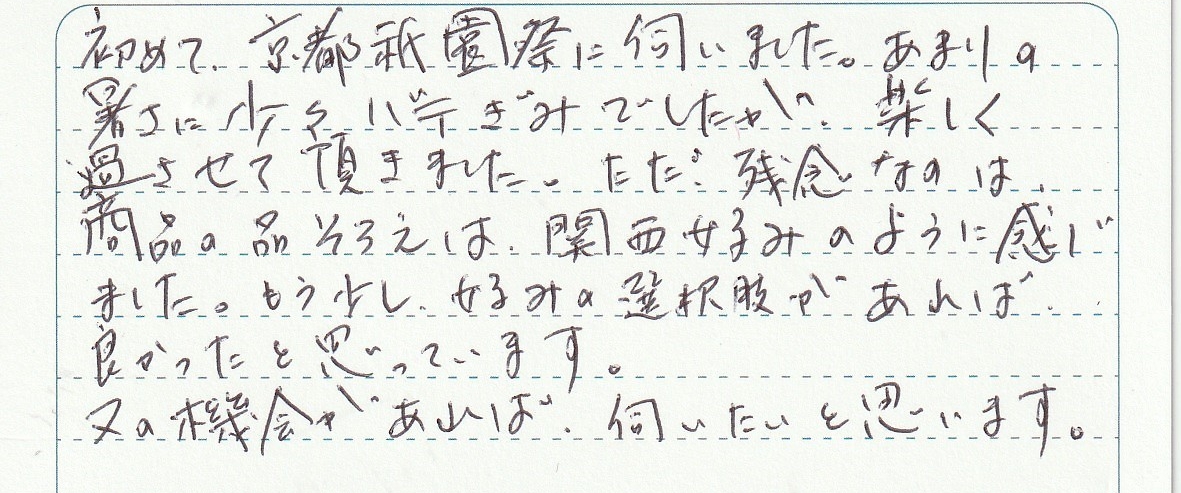 初めて、京都祇園祭に伺いました。あまりの
暑さに少々バテぎみでしたが、楽しく
過させて頂きました。ただ、残念なのは、
商品の品そろえは、関西好みのように感じ
ました。もう少し、好みの選択肢があれば、
良かったと思っています。
又の機会があれば、伺いたいと思います。